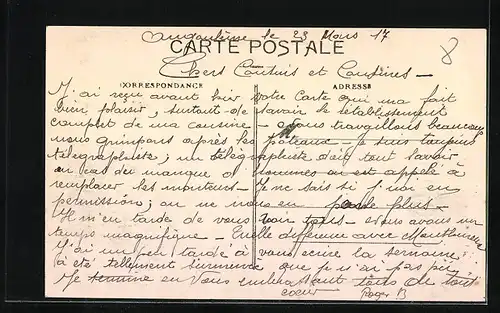 Angoulême le 23 Mars 17
CARTE POSTALE
Chers Cousins et Cousines —
CORRESPONDANCE ADRESSE
J'ai reçu avant hier votre Carte qui m'a fait
bien plaisir, surtout de savoir le rétablissement
complet de ma cousine — Nous travaillons beaucoup
nous grimpons après les poteaux — Je suis toujours
télégraphiste; un télégraphiste doit tout savoir
au cas du manque d'hommes on est appelé à
remplacer les monteurs — Je ne sais si j'irai en
permission; on ne nous en parle plus —
Il m'en tarde de vous voir tous — Nous avons un
temps magnifique — Quelle différence avec
J'ai un peu tardé à vous écrire la semaine
a été tellement que je n'ai pas pu
Je termine en vous embrassant tous de tout
coeur Roger B